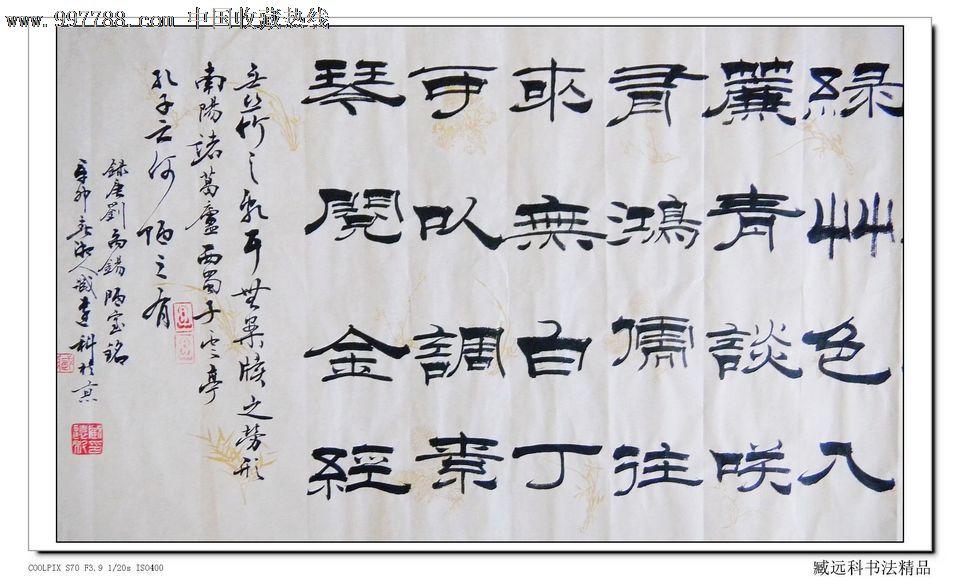 www.997788.com 中国收藏热线
綠艸色入
簾青談咲
有鴻儒往
來無白丁
可以調素
琴閱金經
無絲竹之亂耳無案牘之勞形
南陽諸葛廬西蜀子雲亭
孔子云何陋之有
錄唐劉禹錫陋室銘
辛卯春湘人臧遠科於京
COOLPIX S70 F3.9 1/20s ISO400
臧远科书法精品